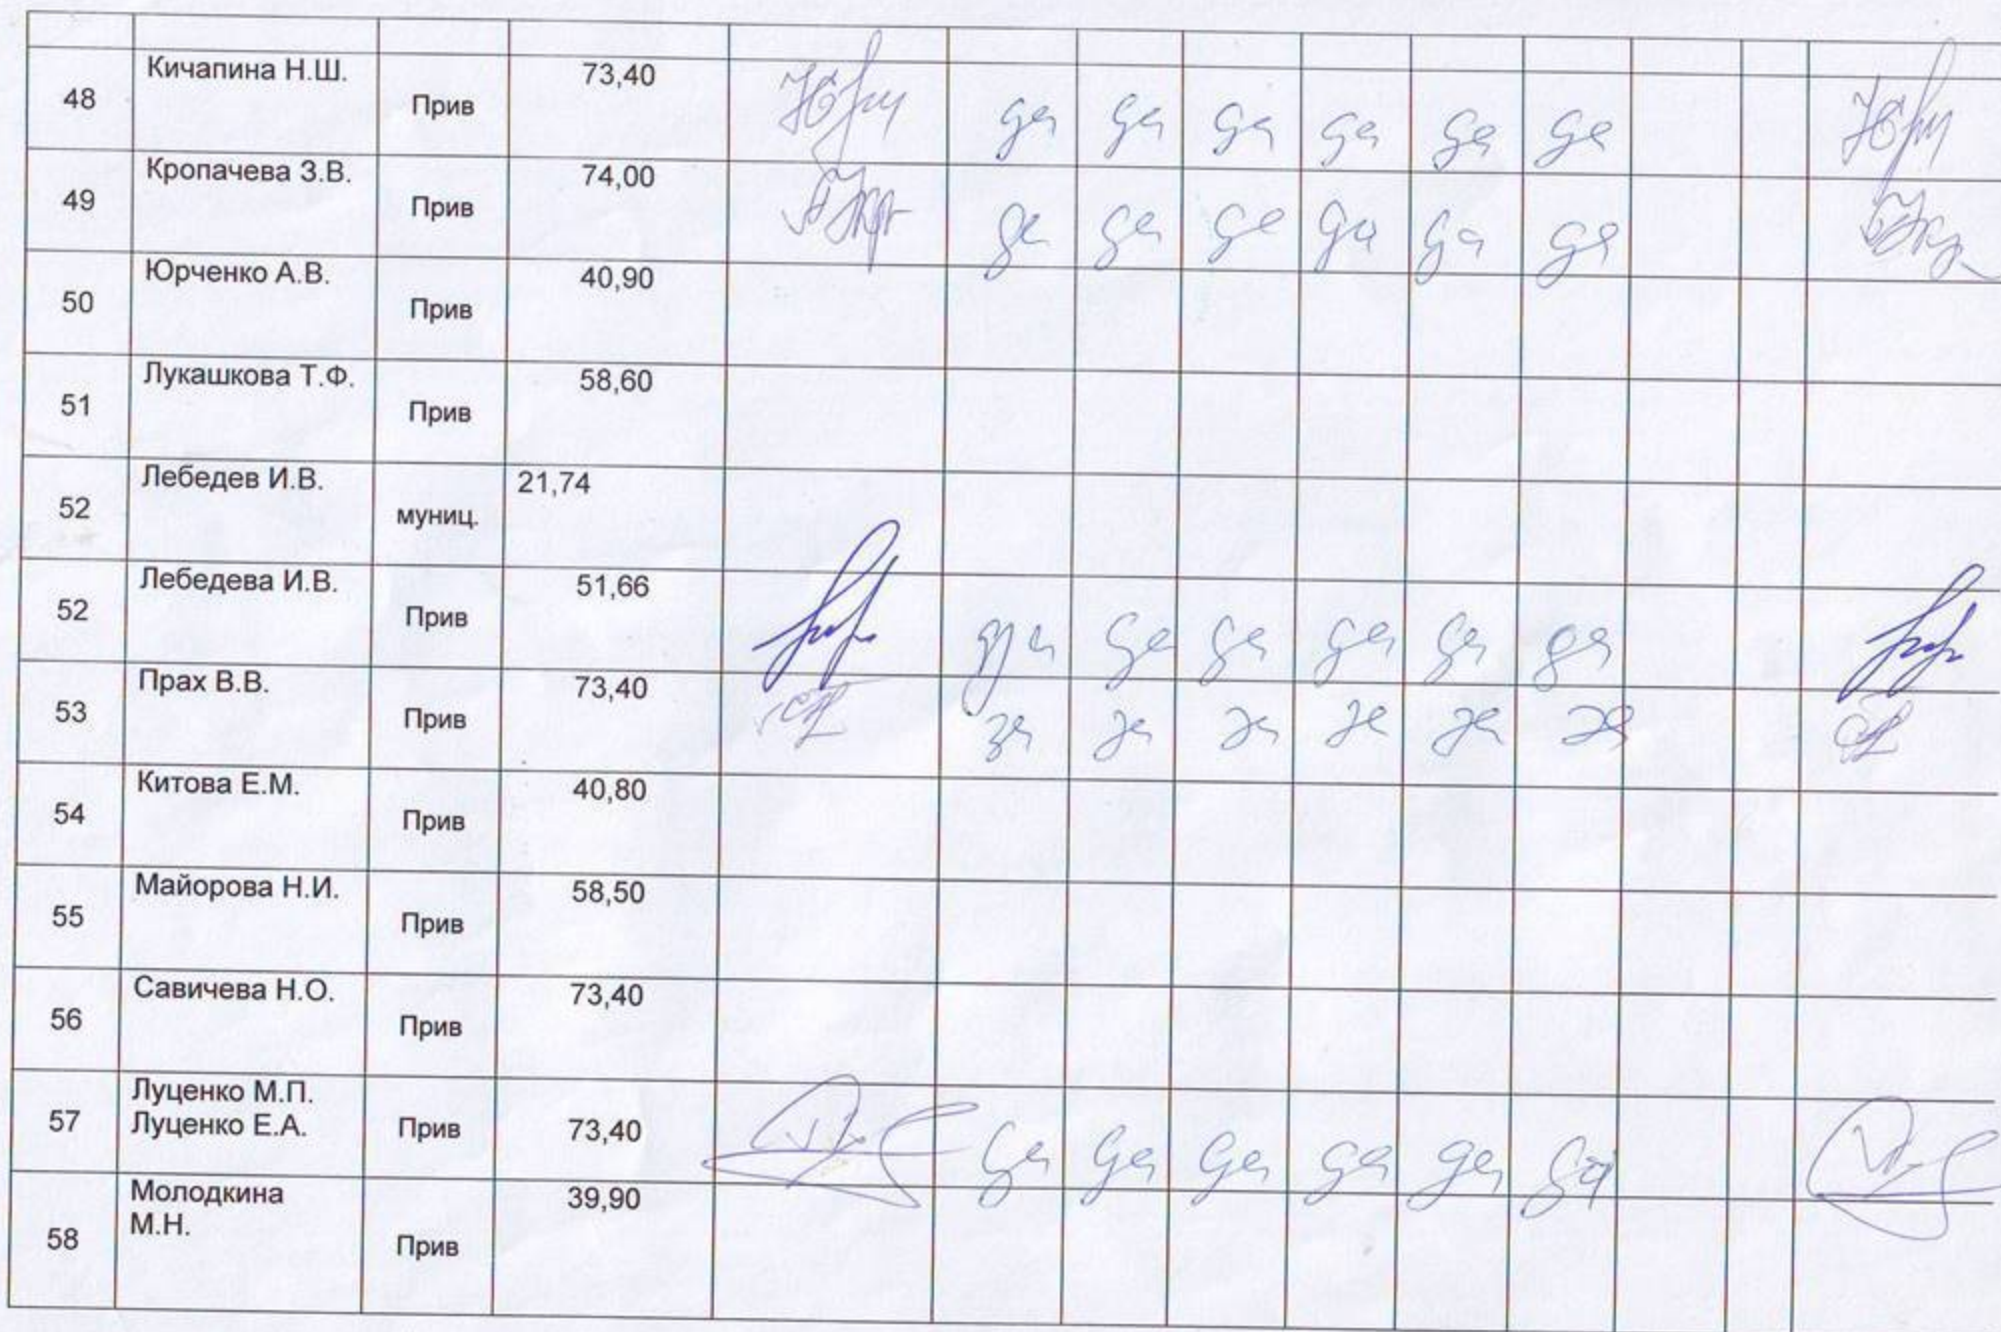 48 Кичапина Н.Ш. Прив 73,40 да да да да да да
49 Кропачева З.В. Прив 74,00 да да да да да да
50 Юрченко А.В. Прив 40,90
51 Лукашкова Т.Ф. Прив 58,60
52 Лебедев И.В. муниц. 21,74
52 Лебедева И.В. Прив 51,66 да да да да да да
53 Прах В.В. Прив 73,40 за за за за за за
54 Китова Е.М. Прив 40,80
55 Майорова Н.И. Прив 58,50
56 Савичева Н.О. Прив 73,40
57 Луценко М.П.
Луценко Е.А. Прив 73,40 да да да да да да
58 Молодкина
М.Н. Прив 39,90